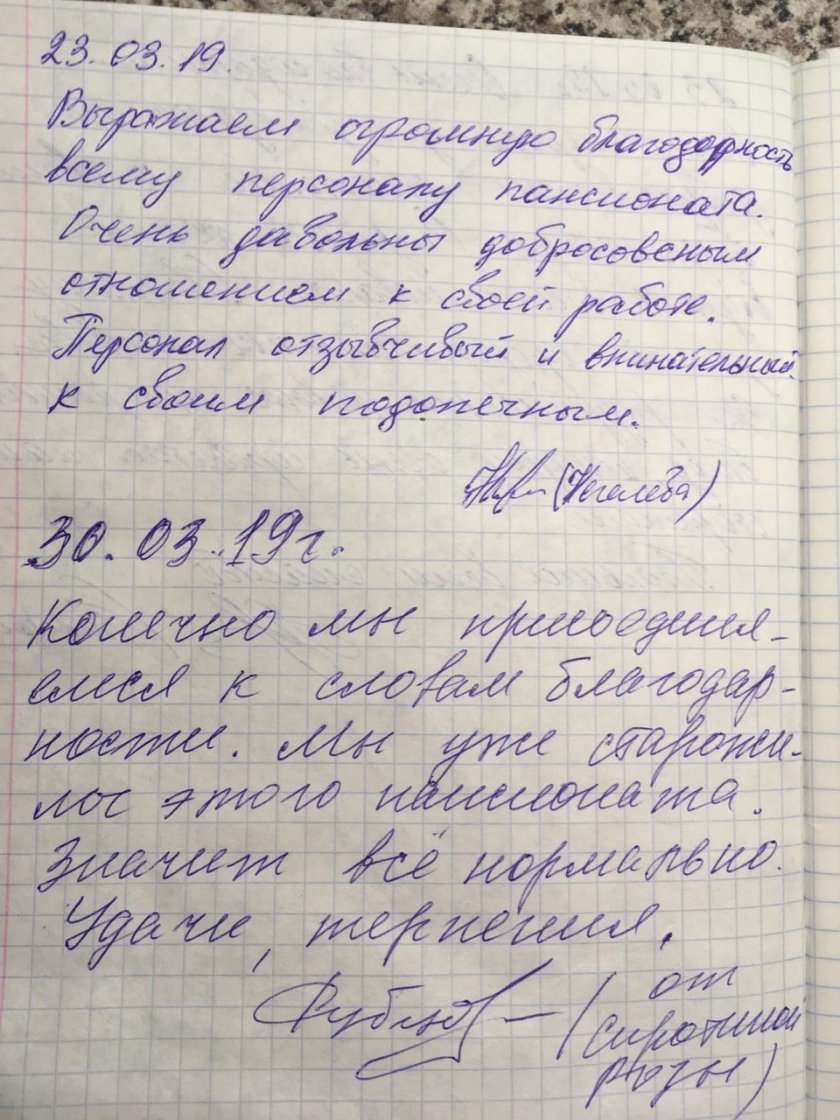 23.03.19.
Выражаем огромную благодарность
всему персоналу пансионата.
Очень давольны добросовесным
отношением к своей работе.
Персонал отзывчивый и внимательный
к своим подопечным.
30.03.19г.
Конечно мы присоединя-
емся к словам благодар-
ности. Мы уже старожи-
лы этого пансионата.
Значит всё нормально.
Удачи, терпения.
Рубцов — (от
Сиротиной
Розы)